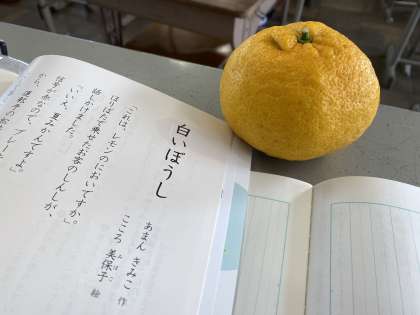 白いぼうし
あまん きみこ 作
こころ 美保子 絵
みほこ
「これは、レモンのにおいですか。」
ほりばたで乗せたお客のしんしが、
話しかけました。
「いいえ、夏みかんですよ。」
信号が赤なので、ブレーキ